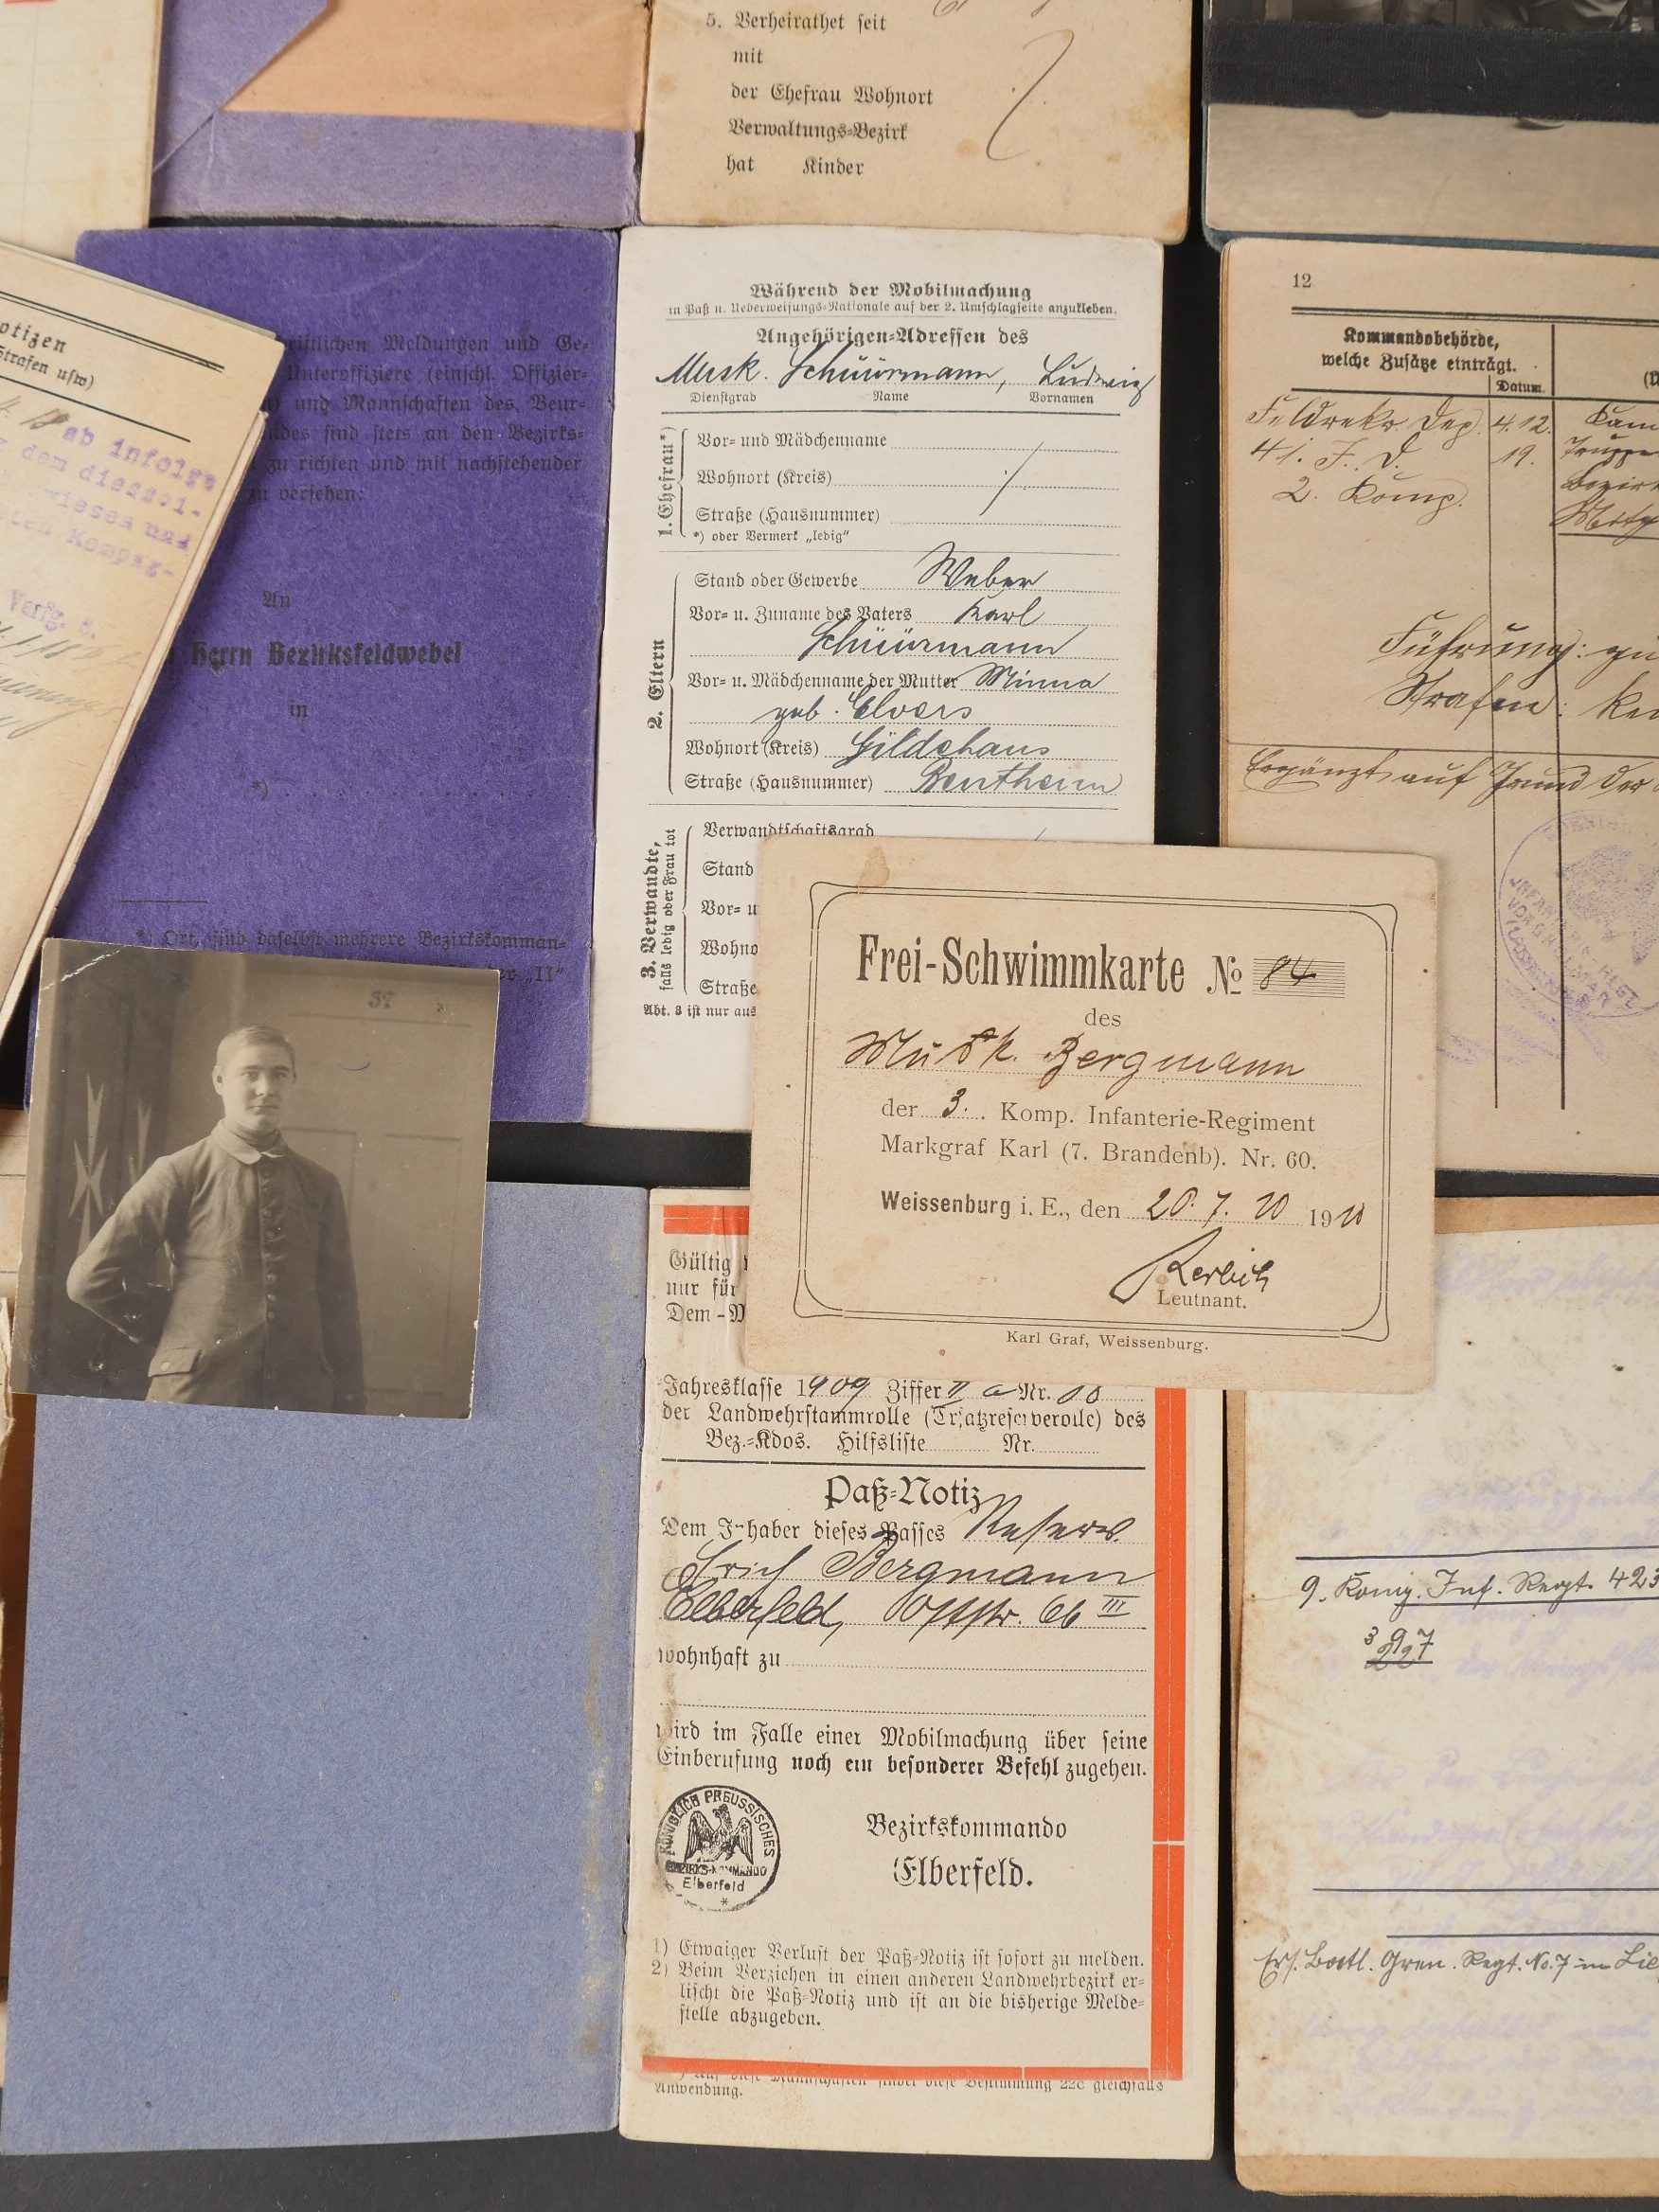 5. Verheirathet seit
mit
der Ehefrau Wohnort
Verwaltungs-Bezirk
hat Kinder
otizen
Strafen usw)
18 ab infolge
dem diessei-
wiesen und
ten Kompag-
Verfg.
rittlichen Meldungen und Ge-
Unteroffiziere (einschl. Offizier-
) und Mannschaften des Beur-
des sind stets an den Bezirks-
zu richten und mit nachstehender
zu versehen:
An
Herrn Bezirksfeldwebel
in
*)
*) Ort, sind daselbst mehrere Bezirkskomman-
der „II“
Während der Mobilmachung
in Paß u. Ueberweisungs-Nationale auf der 2. Umschlagseite anzukleben.
Angehörigen-Adressen des
Musk. Schüürmann, Ludwig
Dienstgrad Name Vornamen
1. Ehefrau*)
Vor- und Mädchenname
Wohnort (Kreis)
Straße (Hausnummer)
*) oder Vermerk „ledig“
2. Eltern
Stand oder Gewerbe Weber
Vor- u. Zuname des Vaters Karl
Schüürmann
Vor- u. Mädchenname der Mutter Minna
geb. Elvers
Wohnort (Kreis) Gildehaus
Straße (Hausnummer) Bentheim
3. Verwandte,
falls ledig oder Frau tot
Verwandtschaftsgrad
Stand
Vor- u
Wohno
Straße
Abt. 3 ist nur aus
12
Kommandobehörde,
welche Zusätze einträgt.
Datum.
Feldrekr. Dep. 4.12.
41. J. D. 19.
2. Komp.
Führung: gu
Strafen: kei
Ergänzt auf Grund der
INFANTERIE-REGT
37
Frei-Schwimmkarte No 84
des
Musk. Bergmann
der 3. Komp. Infanterie-Regiment
Markgraf Karl (7. Brandenb). Nr. 60.
Weissenburg i. E., den 20. 7. 10 1910
Leutnant.
Karl Graf, Weissenburg.
Gültig
nur für
Dem-M
Jahresklasse 1909 Ziffer II a Nr. 10
der Landwehrstammrolle (Ersatzreserverolle) des
Bez.-Kdos. Hilfsliste Nr.
Paß-Notiz
Dem Inhaber dieses Passes Reserv.
Erich Bergmann
Elberfeld, Oststr. 66 III
wohnhaft zu
wird im Falle einer Mobilmachung über seine
Einberufung noch ein besonderer Befehl zugehen.
KÖNIGLICH PREUSSISCHES
BEZIRKS-KOMMANDO
Elberfeld
Bezirkskommando
Elberfeld.
1) Etwaiger Verlust der Paß-Notiz ist sofort zu melden.
2) Beim Verziehen in einen anderen Landwehrbezirk er-
lischt die Paß-Notiz und ist an die bisherige Melde-
stelle abzugeben.
Auf diese Mannschaften findet diese Bestimmung 22c gleichfalls
Anwendung.
9. Komp. Inf. Regt. 423
3 297
Ers. Batl. Gren. Regt. No. 7 in Lie